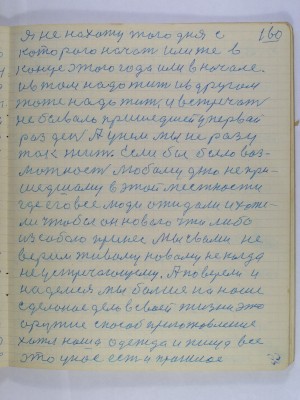 Я не нахожу того дня с 160
которого начат или же в
конце этого года или в начале.
И в том надо жит и в другом
тоже надо жит и встречат
не бывало пришедший первай
раз ден А у нем мы не разу
так жит. Если бы было воз-
можност любому дню не при-
шедшаму в этой местности
где его все люди ожидали и хоте-
ли чтобы он новаго что либо
из собою принес Мы с вами не
верим живому новаму не когда
не устричающему. А поверели и
надемся мы болше на наше
сделоное дело в своей жизни это
оружие способ приготовление
хотя наша одежда и пища все
это у нас ест и прашлое